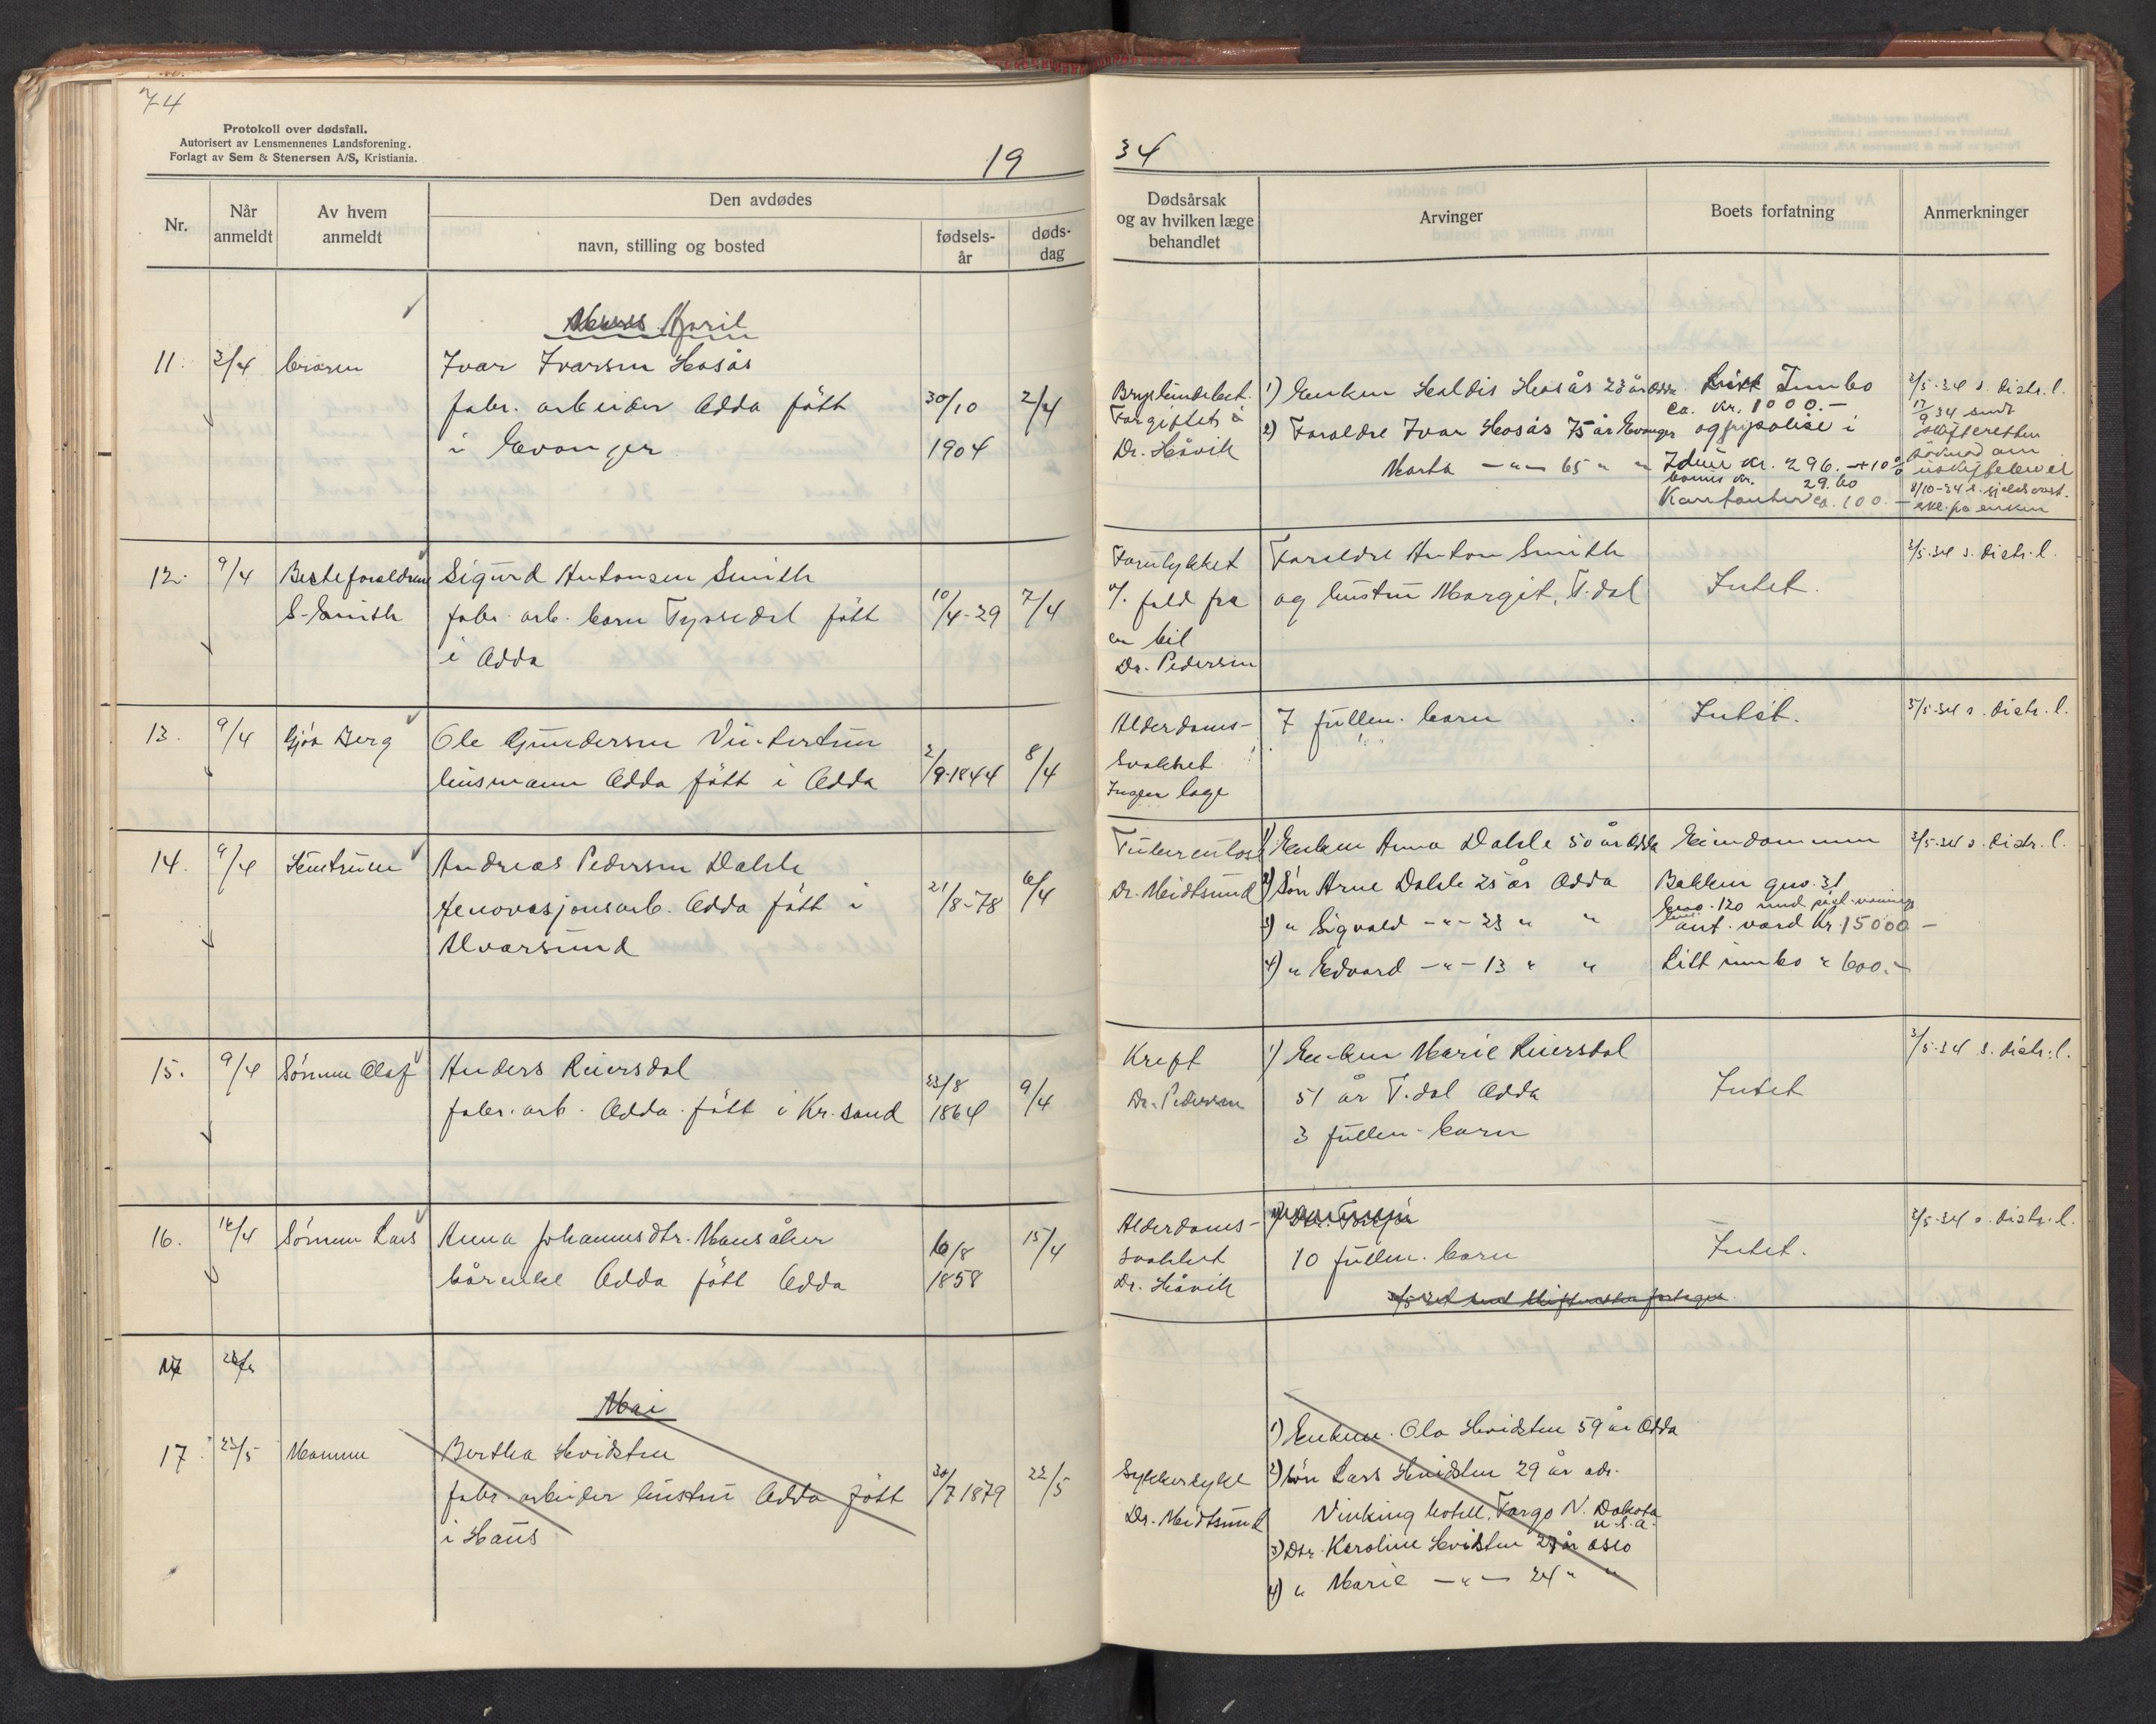 74
Protokoll over dødsfall.
Autorisert av Lensmennenes Landsforening.
Forlagt av Sem & Stenersen A/S, Kristiania.
19
34
Nr.
Når anmeldt
Av hvem anmeldt
Den avdødes
navn, stilling og bosted
fødsels-år
døds-dag
Dødsårsak og av hvilken læge behandlet
Arvinger
Boets forfatning
Anmerkninger
April
11. 3/4
Ivar Ivarsen Hosås
fabr. arbeider Odda født
i Evanger
30/10
1904
2/4
Forgiftet
Dr. Håvik
1) Enken Haldis Hosås 23 år Odda
2) Foreldre Ivar Hosås 75 år Evanger
Marta —"— 65 " "
Innbo
ca. kr. 1000.-
og polise i
Idun kr. 296.- + 10%
bonus kr. 29.60
ca. 100.-
3/5-34 s. distr. l.
17/9 34 sendt
skifteretten
søknad om
8/10-34 s.
på enken
12. 9/4
Besteforeldrene
S. Smith
Sigurd Antonsen Smith
fabr. arb. barn Tyssedal født
i Odda
10/4-29
7/4
Forulykket
v/. fald fra
en bil
Dr. Pedersen
Foreldre Anton Smith
og hustru Margit, T.dal
Intet.
3/5-34 s. distr. l.
13. 9/4
Gjøa Berg
Ole Gundersen Vintertun
husmann Odda født i Odda
2/9-1844
8/4
Alderdoms-
svakhet
Ingen læge
7 fullm. barn
Intet.
3/5-34 s. distr. l.
14. 9/4
Andreas Pedersen Dahle
renovasjonsarb. Odda født i
Alvorsund
21/8-78
6/4
Tuberculose
Dr. Meidtsund
1) Enken Anna Dahle 50 år Odda
2) Søn Arne Dahle 25 år Odda
3) " Sigvald -"- 23 " "
4) " Edvard -"- 13 " "
Eiendommen
Bakken gno. 31
bno. 120 med
ant. verd kr. 15000.-
Litt innbo " 600.-
3/5-34 s. distr. l.
15. 9/4
Sønnen Olaf
Anders Reiersdal
fabr. arb. Odda født i Kr.sand
23/8
1864
9/4
Kreft
Dr. Pedersen
1) Enken Marie Reiersdal
51 år T.dal Odda
3 fullm. barn
Intet
3/5-34 s. distr. l.
16. 16/4
Sønnen Lars
Anna Johannesdtr. Mannsåker
kårenke Odda født Odda
16/8
1858
15/4
Alderdoms-
svakhet
Dr. Håvik
10 fullm. barn
Intet.
3/5-34 s. distr. l.
17
Mai
17. 23/5
Mannen
Bertha Hvidsten
fabr. arbeider hustru Odda født
i Haus
30/7 1879
22/5
Sukkersyke
Dr. Meidtsund
1) Enkem. Ola Hvidsten 59 år Odda
2) Søn Lars Hvidsten 29 år adr.
Vinking hotell, Fargo N. Dakota
U.S.A.
3) Dtr. Karoline Hvidsten 27 år Oslo
4) " Marie —"— 24 " "